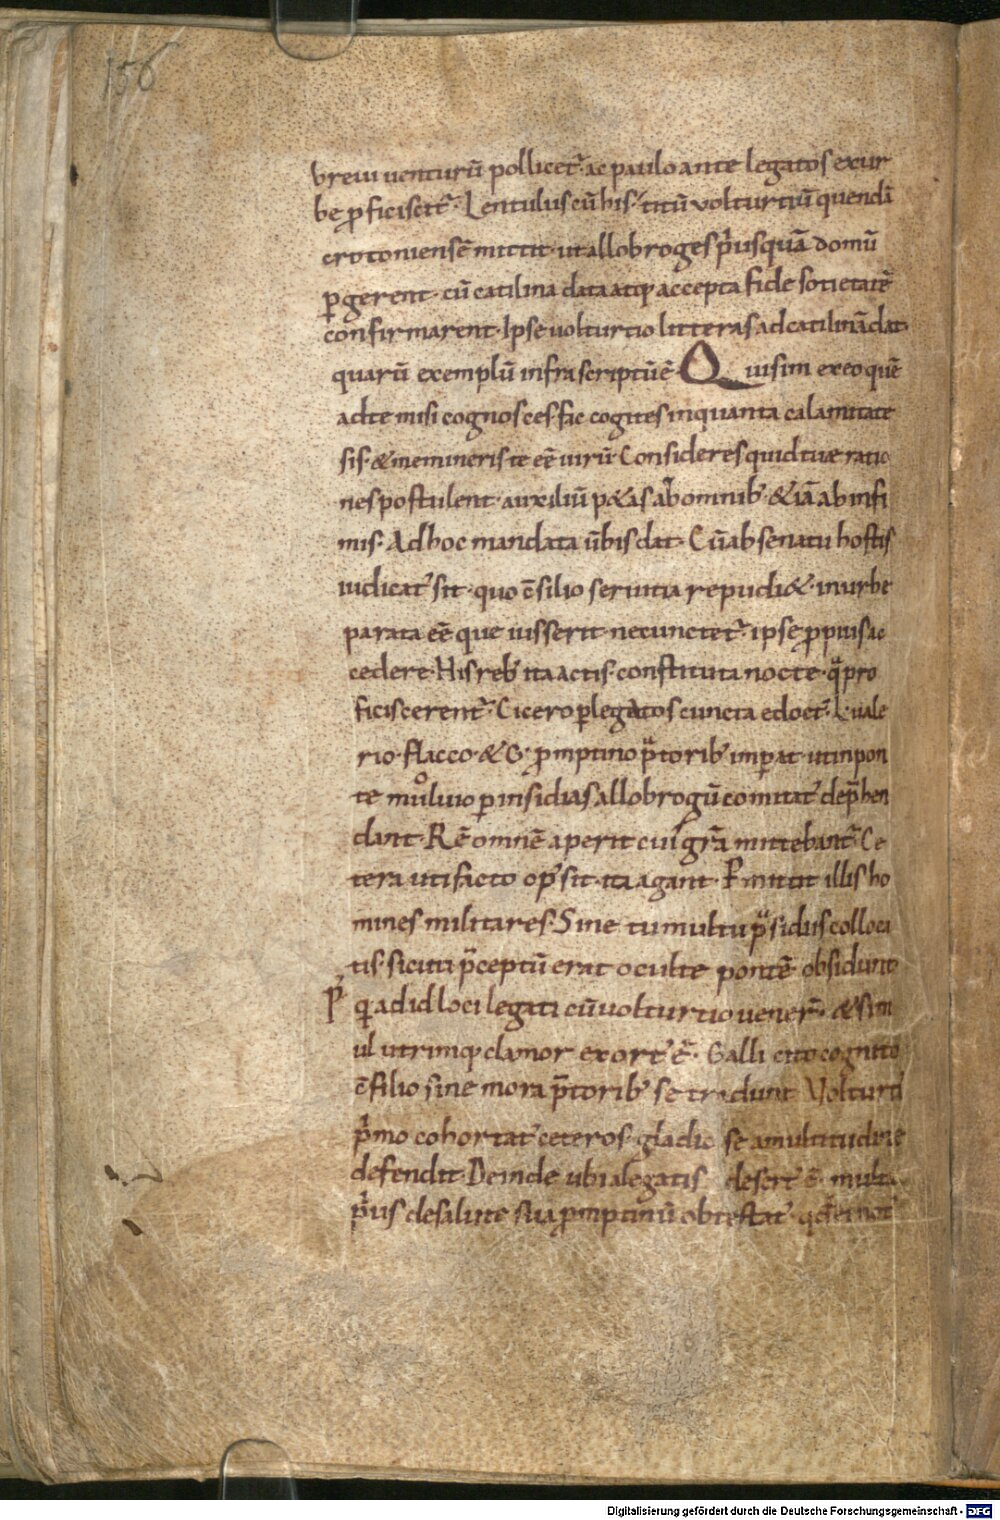 156
breui uenturū pollicet᷑· ac paulo ante legatos exur
be ꝓficiscit᷑· Lentulus cū his· titū volturtiū quendā
crotoniensē mittit· ut allobroges p̓usquā domū
ꝑgerent· cū catilina data atq; accepta fide sotietatē
confirmarent· Ipse uolturtio litteras ad catilinā dat·
quarū exemplū infra scriptū ē· Quis sim ex eo quē
ad te misi cognosces· fac cogites in quanta calamitate
sis· & memineris te eē uirū· Consideres quid tuę ratio
nes postulent· auxiliū p&as ab omnib; & iā ab infi
mis· Ad hoc mandata ūbis dat· Cū ab senatu hostis
iudicat᷑ sit· quo c̄silio seruitia repudi&· in urbe
parata eē que iusserit· ne cunctet᷑· ipse ꝓpius ac
cedere· His reb; ita actis· constituta nocte· q̄ pro
ficiscerent᷑· Cicero ꝑ legatos cuncta edoct᷑· L· uale
rio· flacco· & G· ꝓmptino p̄torib; imꝑat· ut in pon
te muluio ꝑ insidias allobrogū comitat᷑ dep̄hen
dant· Rē omnē aperit cui᷑ grā mittebant᷑· Ce
tera uti facto op᷑ sit· ita agant· P̄mittit illis ho
mines militares· Sine tumultu p̄sidiis colloca
tis· sicuti p̄ceptū erat oculte pontē obsidunt
P̓ q̄ ad id loci legati cū uolturtio uener̄· & sim
ul utrimq; clamor exort᷑ ē· Galli cito cognito
c̄silio sine mora p̄torib; se tradunt Volturti᷑
p̓mo cohortat᷑ ceteros· gladio se a multitudine
defendit· Deinde ubi a legatis desert᷑ ē· multa
p̓us de salute sua ꝓmptinū obtestat᷑· qđ ei not᷑
Digitalisierung gefördert durch die Deutsche Forschungsgemeinschaft - DFG